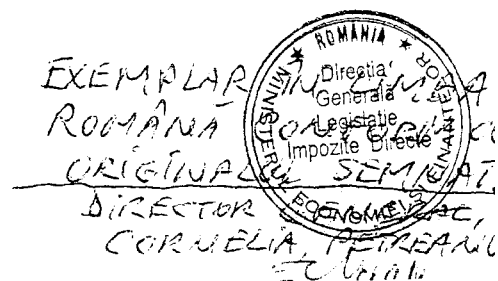 EXEMPLAR ÎN LIMBA
ROMÂNĂ CONFORM CU
ORIGINALUL SEMNAT
DIRECTOR GENERAL,
CORNELIA PETREANU
ROMÂNIA
MINISTERUL ECONOMIEI ȘI FINANȚELOR
Direcția
Generală
Legislație
Impozite Directe